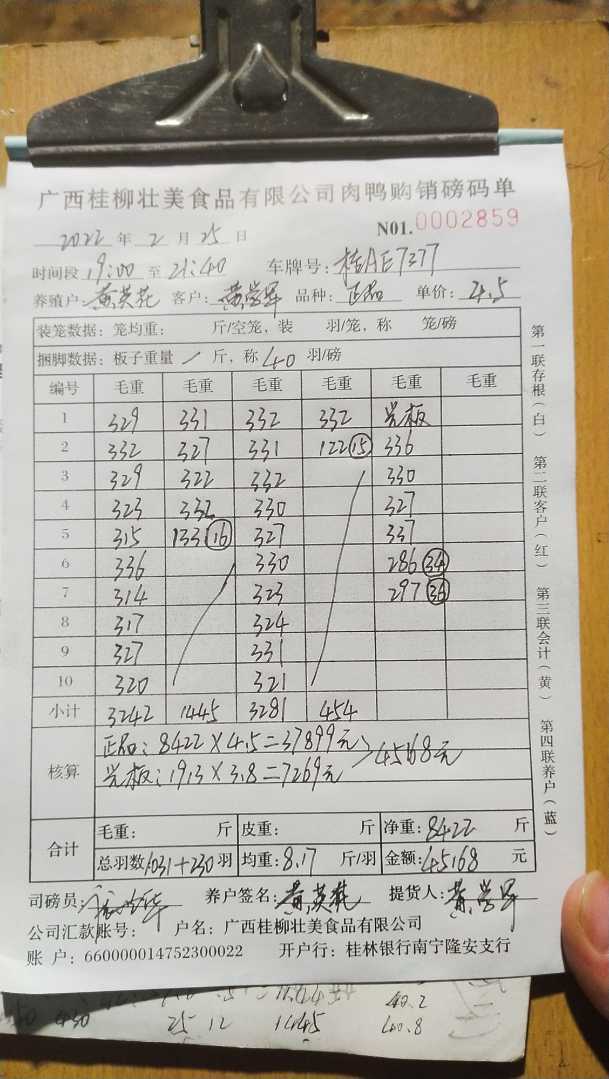 广西桂柳壮美食品有限公司肉鸭购销磅码单
2022 年 2 月 25 日 N01.0002859
时间段 19:00 至 21:40 车牌号: 桂AE7377
养殖户: 黄英花 客户: 黄学军 品种: 正品 单价: 4.5
装笼数据: 笼均重: 斤/空笼, 装 羽/笼, 称 笼/磅
捆脚数据: 板子重量 / 斤, 称 40 羽/磅
编号 毛重 毛重 毛重 毛重 毛重 毛重
1 329 331 332 332 光板
2 332 327 331 122 15 336
3 329 322 332 330
4 323 332 330 327
5 315 133 16 327 337
6 336 330 286 34
7 314 323 297 36
8 317 324
9 327 331
10 320 321
小计 3242 1445 3281 454
核算
正品: 8422×4.5=37899元
光板: 1913×3.8=7269元
45168元
合计
毛重: 斤 皮重: 斤 净重: 8422 斤
总羽数 1031+230 羽 均重: 8.17 斤/羽 金额: 45168 元
司磅员: 养户签名: 黄英花 提货人: 黄学军
公司汇款账号: 户名: 广西桂柳壮美食品有限公司
账 户: 660000014752300022 开户行: 桂林银行南宁隆安支行
第一联存根(白) 第二联客户(红) 第三联会计(黄) 第四联养户(蓝)
40.2
25 12 1445 40.8